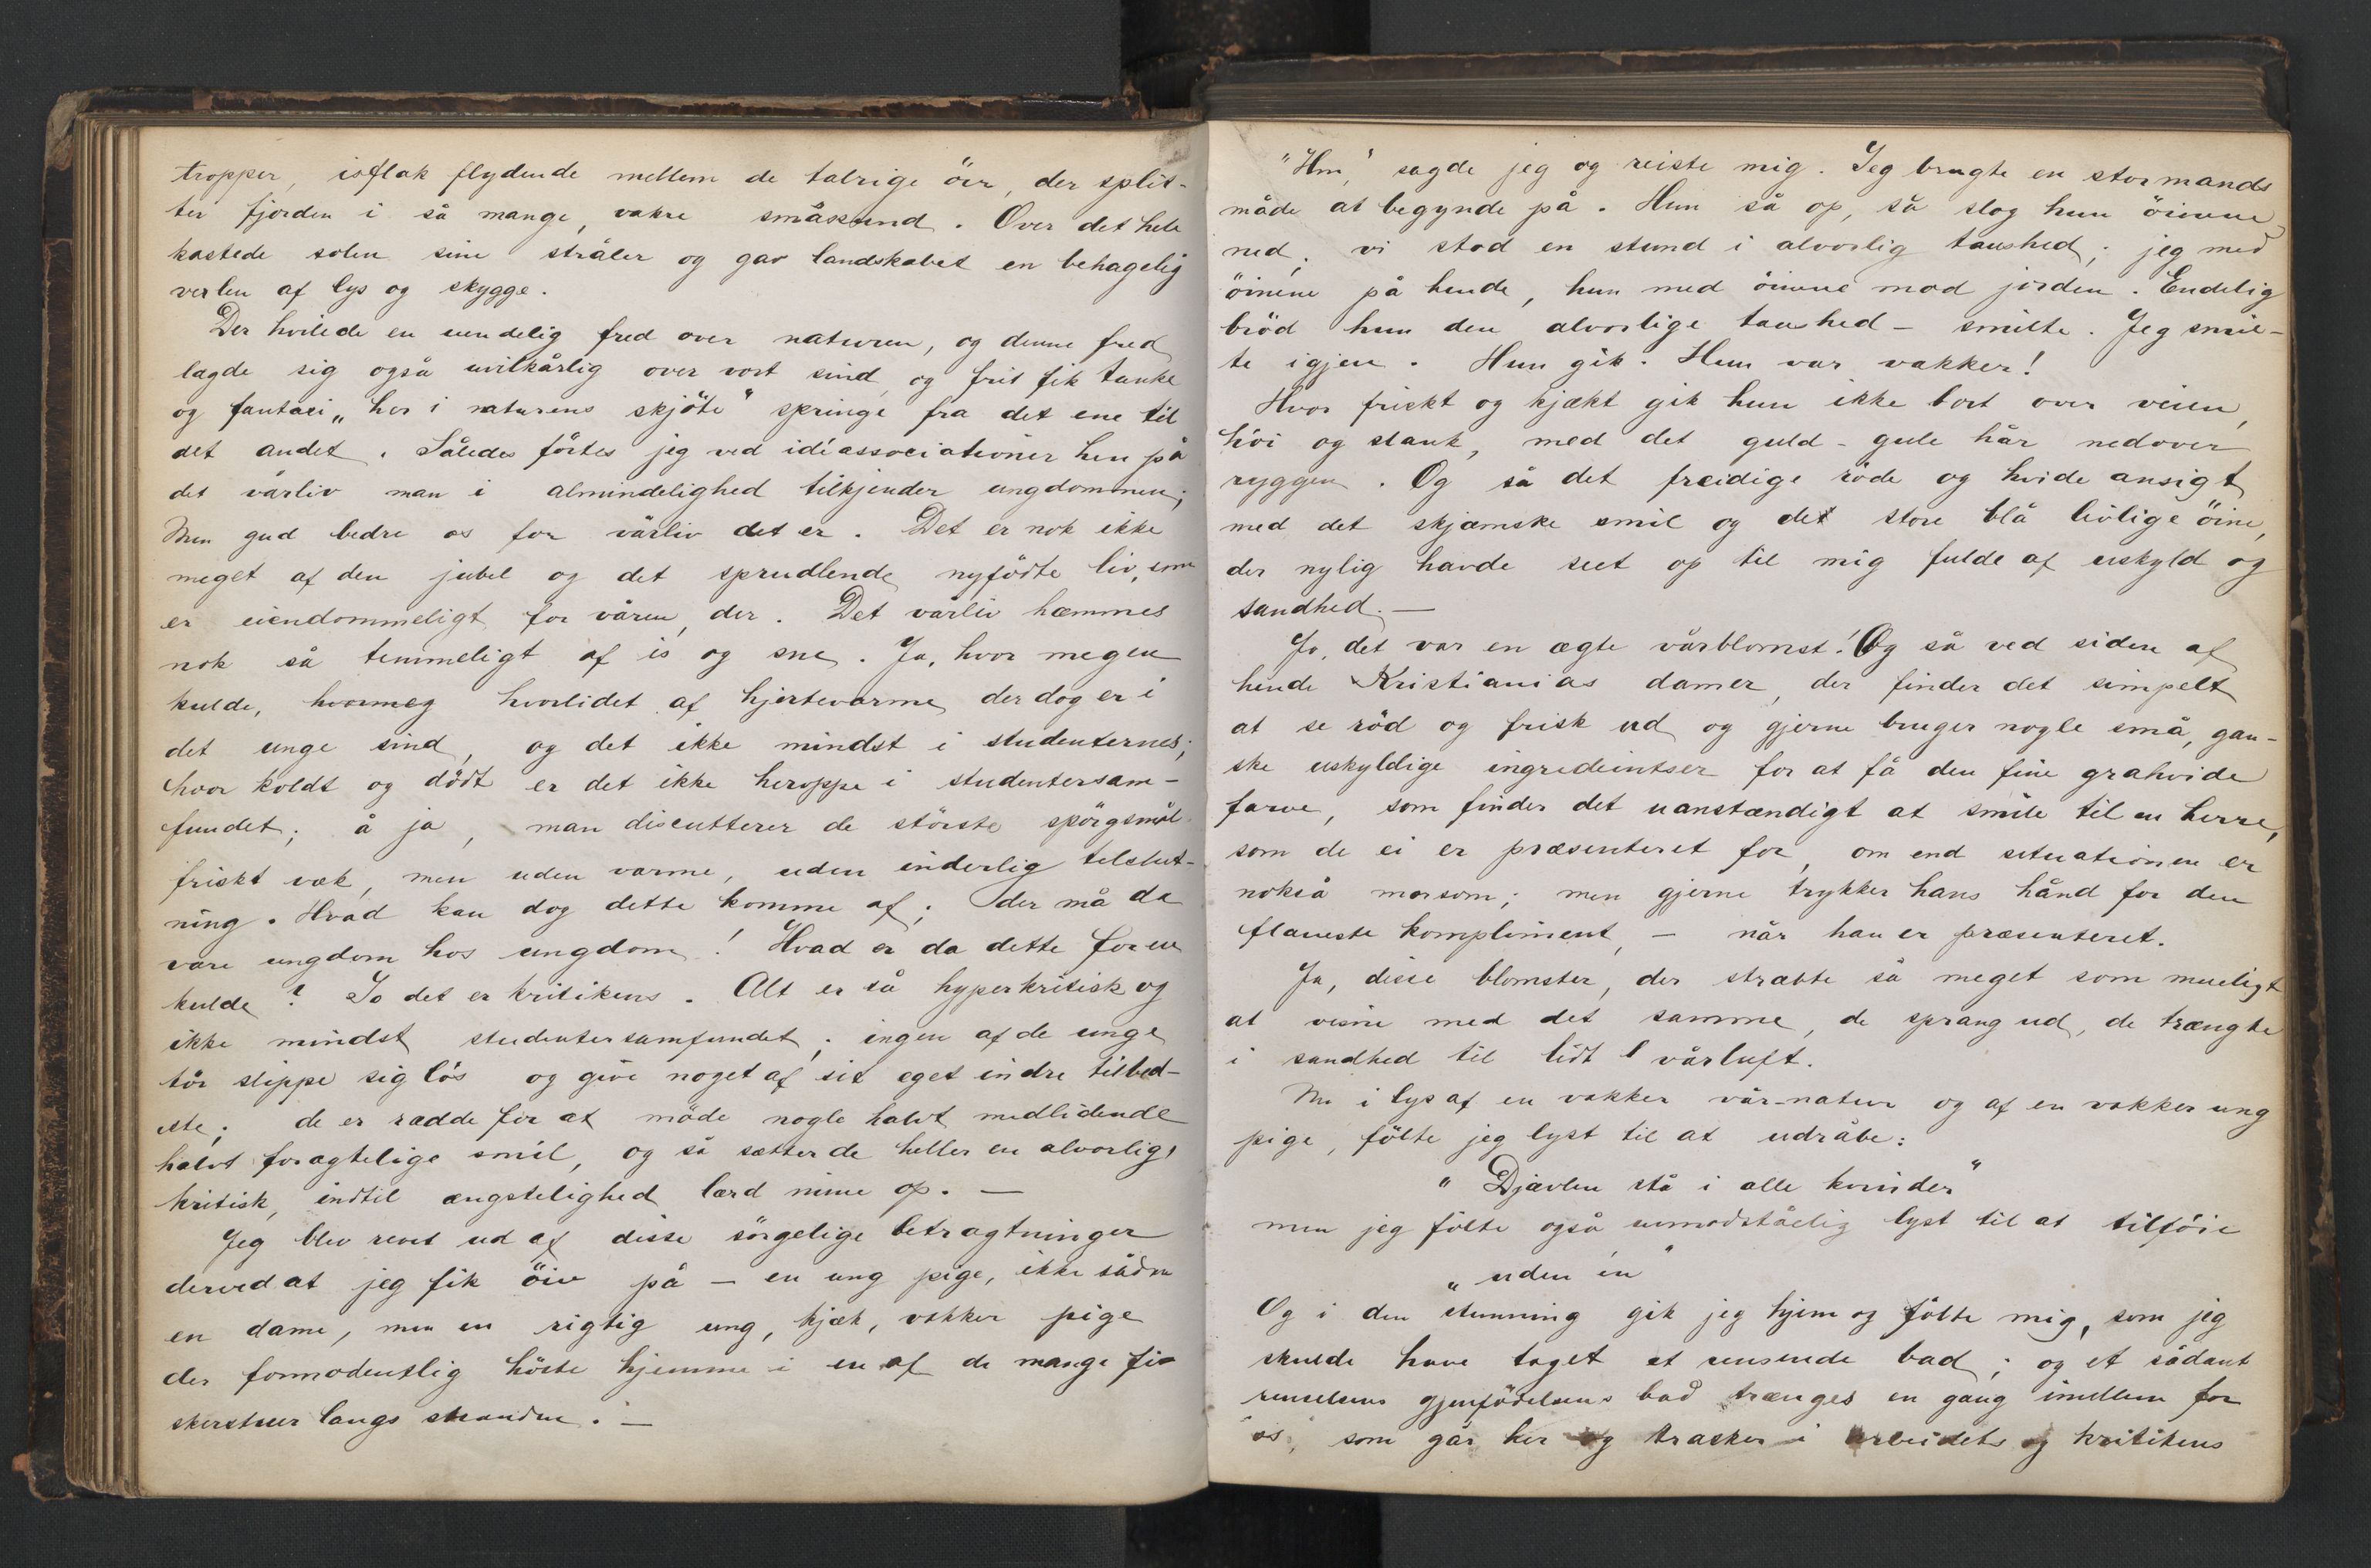 tropper, isflak flydende mellem de talrige öer, der split-
ter fjorden i så mange, vakre småsund. Over det hele
kastede solen sine stråler og gav landskabet en behagelig
verlen af lys og skygge.
Der hvilede en uendelig fred over naturen, og denne fred
lagde sig også uvilkårlig over vort sind, og frit fik tanke
og fantasi „her i naturens skjöte" springe fra det ene til
det andet. Således förtes jeg ved idéassociationer hen på
det vårliv man i almindelighed tilkjender ungdommen;
Men gud bedre os for vårliv det er. Det er nok ikke
meget af den jubel og det sprudlende nyfödte liv, som
er eiendommeligt for våren, der. Det vårliv hæmmes
nok så temmeligt af is og sne. Ja, hvor megen
kulde, hvormeg hvorlidet af hjertevarme der dog er i
det unge sind, og det ikke mindst i studenternes;
hvor koldt og dödt er det ikke heroppe i studentersam-
fundet; å ja, man discutterer de störste spörgsmål
friskt væk, men uden varme, uden inderlig tilslut-
ning. Hvad kan dog dette komme af; der må da
være ungdom hos ungdom! Hvad er da dette for en
kulde? Jo det er kritikens. Alt er så hyperkritisk og
ikke mindst studentersamfundet; ingen af de unge
tör slippe sig lös og give noget af sit eget indre tilbed-
ste; de er rædde for at möde nogle halvt medlidende
halvt foragtelige smil, og så sætter de heller en alvorlig,
kritisk, indtil ængstelighed lærd mine op. —
Jeg blev revet ud af disse sörgelige betragtninger
derved at jeg fik öie på — en ung pige, ikke sådn
en dame, men en rigtig ung, kjæk, vakker pige
der formodentlig hörte hjemme i en af de mange fi-
skerstuer langs stranden. —
"Hm," sagde jeg og reiste mig. Jeg brugte en stormands
måde at begynde på. Hun så op, så slog hun öinene
ned; vi stod en stund i alvorlig taushed; jeg med
öinene på hende, hun med öinene mod jorden. Endelig
bröd hun den alvorlige taushed – smilte. Jeg smil-
te igjen. Hun gik. Hun var vakker!
Hvor friskt og kjækt gik hun ikke bort over veien,
höi og slank, med det guld-gule hår nedover
ryggen. Og så det freidige röde og hvide ansigt
med det skjæmske smil og det store blå livlige öine,
der nylig havde seet op til mig fulde af uskyld og
sandhed. —
Jo, det var en ægte vårblomst! Og så ved siden af
hende Kristianias damer, der finder det simpelt
at se röd og frisk ud og gjerne bruger nogle små, gan-
ske uskyldige ingredeintser for at få den fine gråhvide
farve, som finder det uanstændigt at smile til en herre,
som de ei er præsenteret for, om end situationen er
nokså morsom; men gjerne trykker hans hånd for den
flaueste kompliment, — når han er præsenteret.
Ja, disse blomster, der stræbte så meget som mueligt
at visne med det samme, de sprang ud, de trængte
i sandhed til lidt l vårluft.
Nu i lys af en vakker vår-natur og af en vakker ung
pige, fölte jeg lyst til at udråbe:
"Djævlen stå i alle kvinder"
men jeg fölte også uimodståelig lyst til at tilföie
„uden én"
Og i den stemning gik jeg hjem og fölte mig, som jeg
skulde have taget et rensende bad; og et sådant
renselsens gjenfödelsens bad trænges en gang imellem for
os, som går her og trasker i arbeidets og kritikens